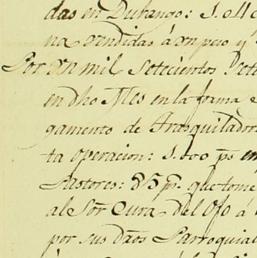 das en Durango: 1.011
na vendidas á un peso y
Por un mil setecientos sete
en dho Mes en la forma
gamento de Trasquilador
ta operacion: 1.500 ps en
Pastores: 85 ps. que tome
al Sor Cura del Ojo á
por sus dros Parroquial